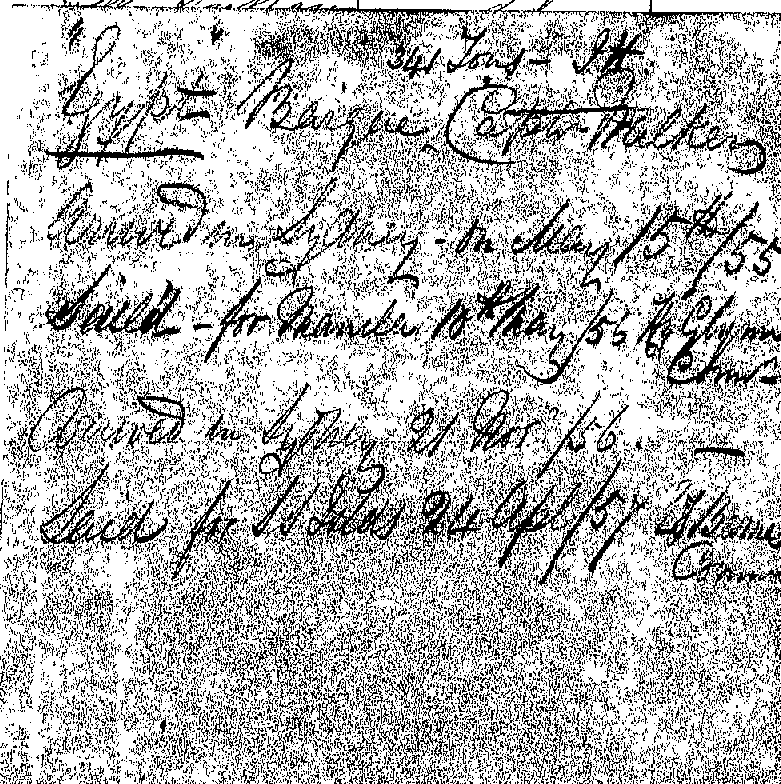 341 Tons
Egypt Barque Capt. Walker
Arrived in Sydney - on May 15th/55
Sail'd - for Manila 18th May/55
Comr
Arrived in Sydney 21 Nov /56. —
Said for 24 Apl/57
Comm